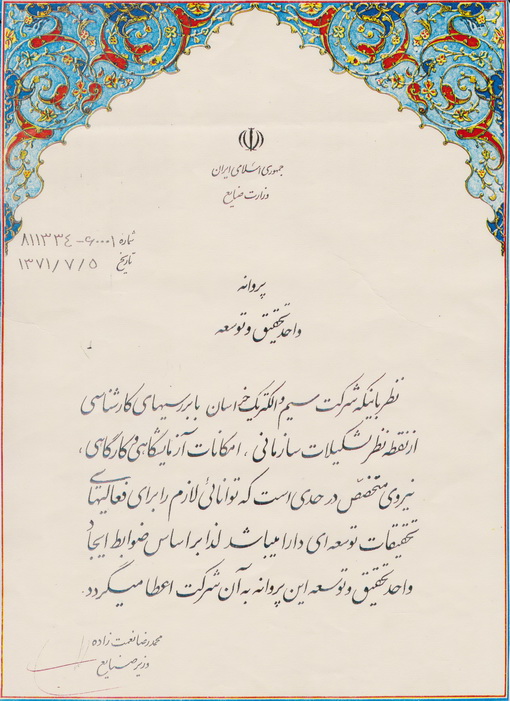 جمهوری اسلامی ایران
وزارت صنایع
شماره ۸۱۱۳۳٤-۶۰۰۰۱
تاریخ ۱۳۷۱/۷/۵
پروانه
واحد تحقیق و توسعه
نظر باینکه شرکت سیم و الکتریک خراسان با بررسیهای کارشناسی
از نقطه نظر تشکیلات سازمانی ، امکانات آزمایشگاهی و کارگاهی ،
نیروی متخصّص در حدی است که توانائی لازم را برای فعالیتهای
تحقیقات توسعه ای دارا میباشد لذا بر اساس ضوابط ایجاد
واحد تحقیق و توسعه این پروانه به آن شرکت اعطا میگردد.
محمدرضا نعمت زاده
وزیر صنایع